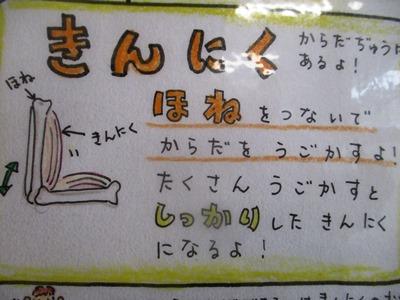 きんにく
からだぢゅうに
あるよ!
ほね
きんにく
ほねをつないで
からだを うごかすよ!
たくさん うごかすと
しっかりした きんにく
になるよ!